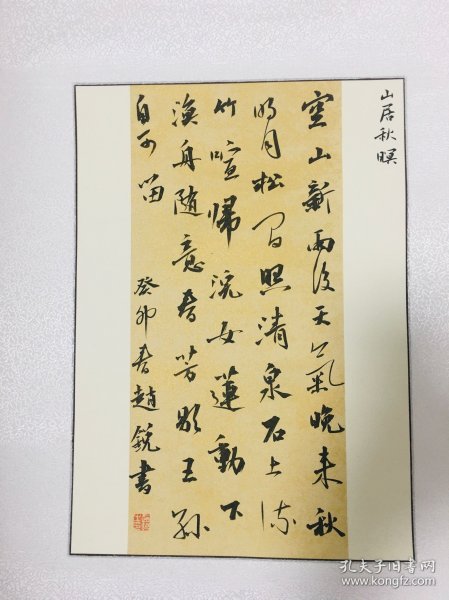 山居秋暝
空山新雨後天氣晚来秋
明月松间照清泉石上流
竹喧歸浣女蓮動下
漁舟随意春芳歇王孫
自可留
癸卯春趙銳書
孔夫子旧书网
www.kongfz.com